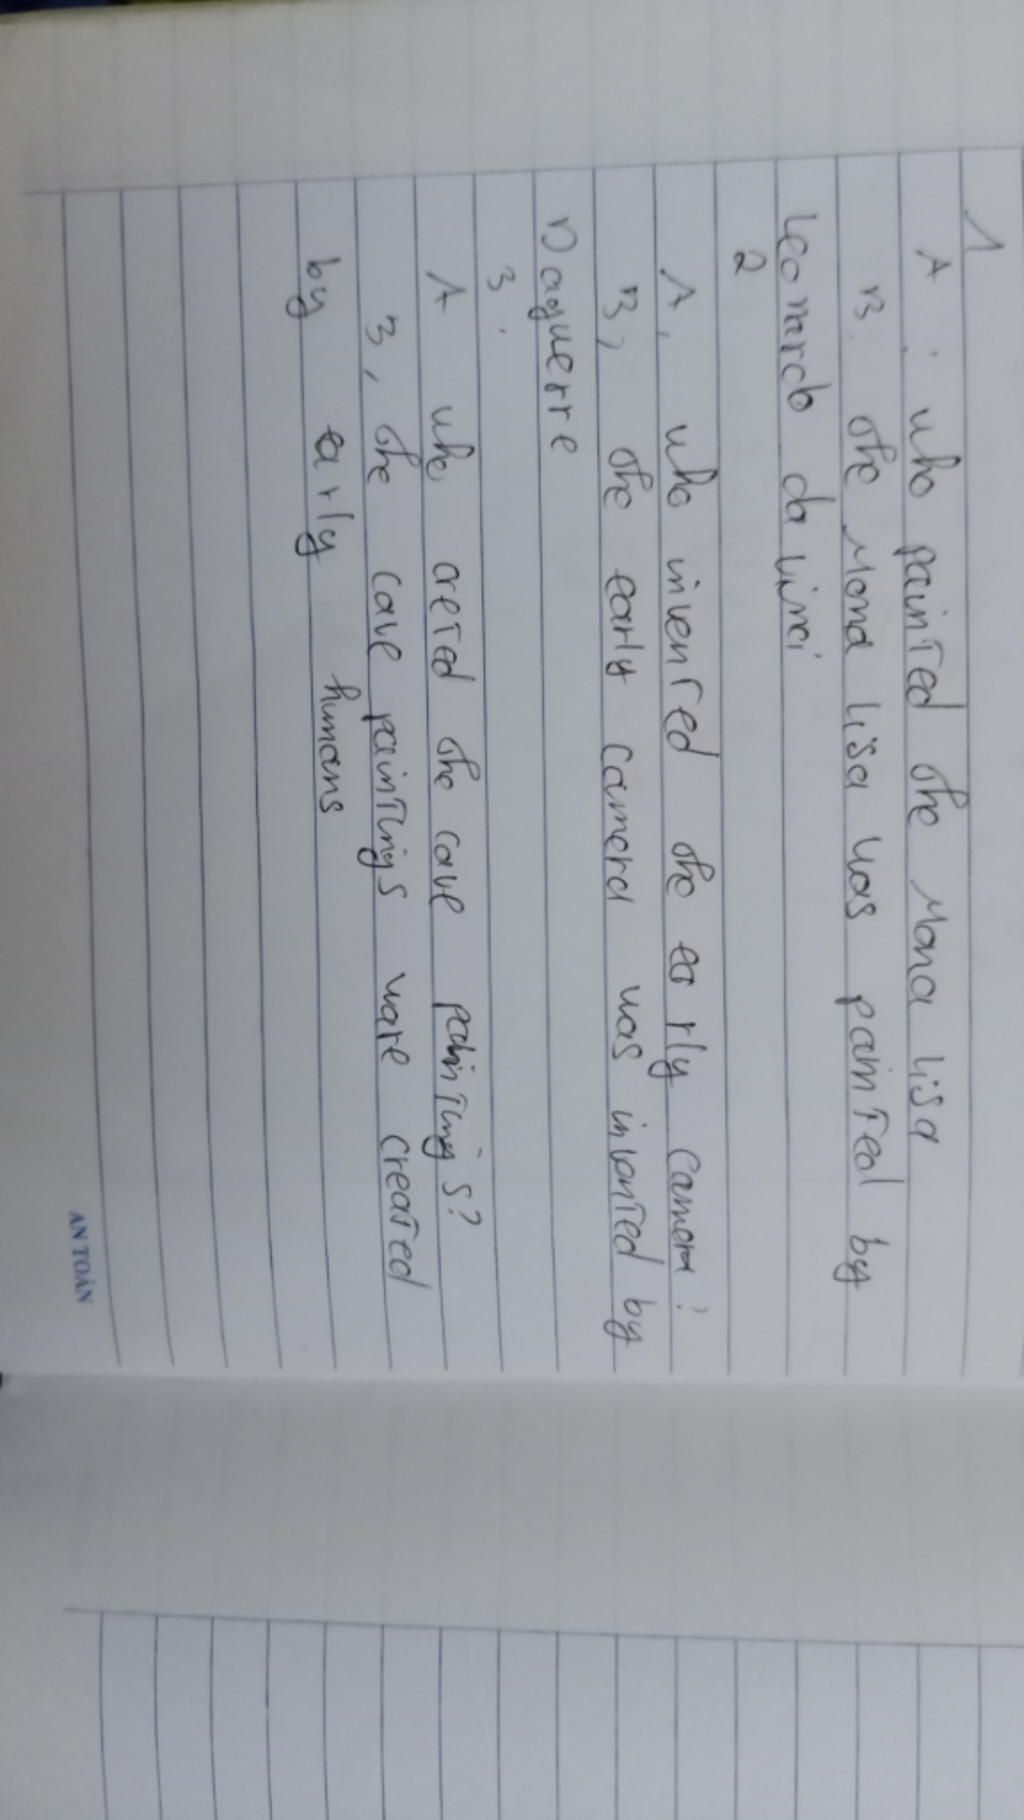 1
A : who painted the Mona lisa
B. the Mona lisa was painted by
Leonardo da vinci
2
A, who invented the early camera?
B, the early camera was invonted by
Daguerre
3.
A who creted the cave paintings?
B, the cave paintings ware created
by early humans
AN TOÀN